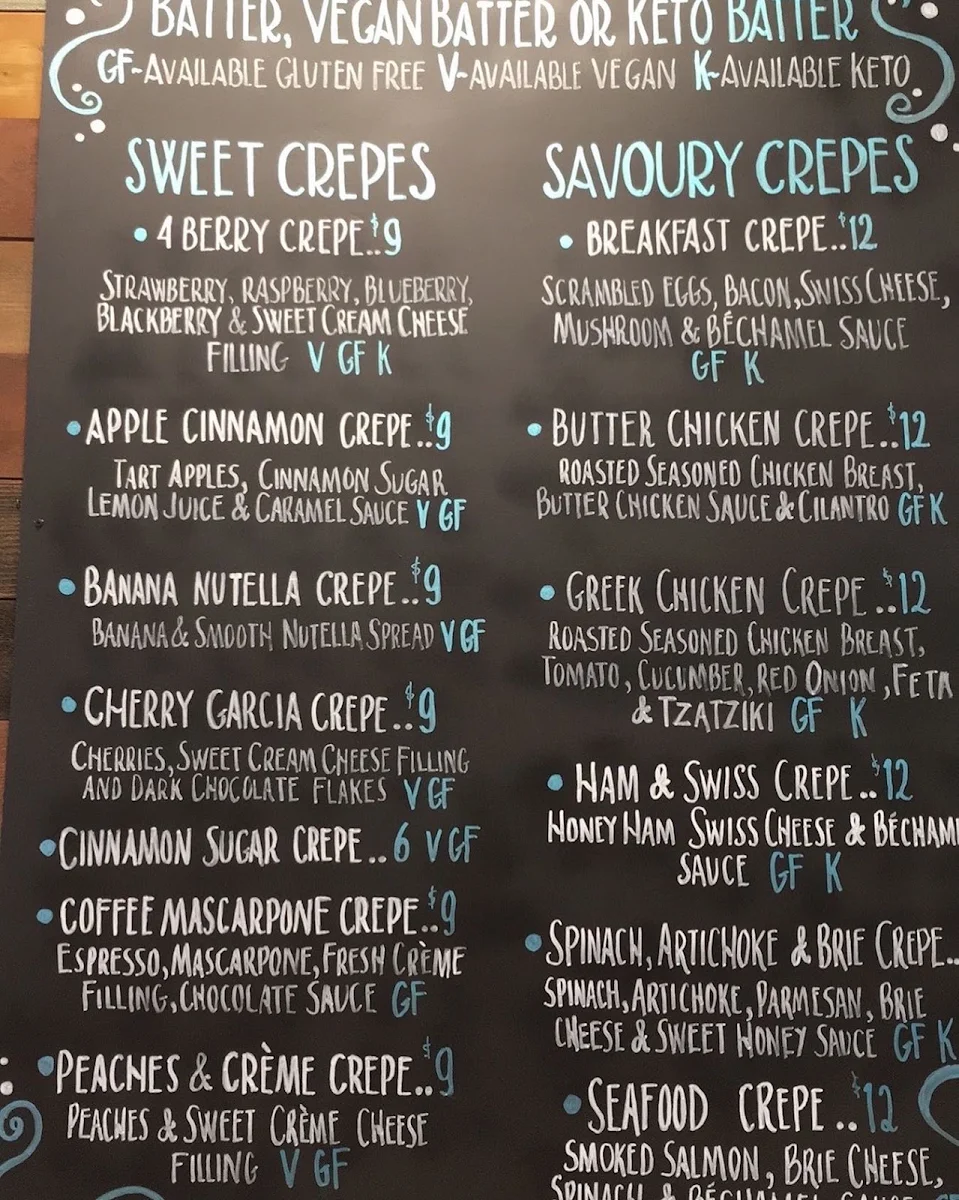 BATTER, VEGAN BATTER OR KETO BATTER
GF-AVAILABLE GLUTEN FREE V-AVAILABLE VEGAN K-AVAILABLE KETO
SWEET CREPES
• 4 BERRY CREPE..$9
STRAWBERRY, RASPBERRY, BLUEBERRY,
BLACKBERRY & SWEET CREAM CHEESE
FILLING V GF K
• APPLE CINNAMON CREPE..$9
TART APPLES, CINNAMON SUGAR
LEMON JUICE & CARAMEL SAUCE V GF
• BANANA NUTELLA CREPE..$9
BANANA & SMOOTH NUTELLA SPREAD V GF
• CHERRY GARCIA CREPE..$9
CHERRIES, SWEET CREAM CHEESE FILLING
AND DARK CHOCOLATE FLAKES V GF
• CINNAMON SUGAR CREPE..6 V GF
• COFFEE MASCARPONE CREPE..$9
ESPRESSO, MASCARPONE, FRESH CRÈME
FILLING, CHOCOLATE SAUCE GF
• PEACHES & CRÈME CREPE..$9
PEACHES & SWEET CRÈME CHEESE
FILLING V GF
SAVOURY CREPES
• BREAKFAST CREPE..$12
SCRAMBLED EGGS, BACON, SWISS CHEESE,
MUSHROOM & BÉCHAMEL SAUCE
GF K
• BUTTER CHICKEN CREPE..$12
ROASTED SEASONED CHICKEN BREAST,
BUTTER CHICKEN SAUCE & CILANTRO GF K
• GREEK CHICKEN CREPE..$12
ROASTED SEASONED CHICKEN BREAST,
TOMATO, CUCUMBER, RED ONION, FETA
& TZATZIKI GF K
• HAM & SWISS CREPE..$12
HONEY HAM SWISS CHEESE & BÉCHAM
SAUCE GF K
• SPINACH, ARTICHOKE & BRIE CREPE..
SPINACH, ARTICHOKE, PARMESAN, BRIE
CHEESE & SWEET HONEY SAUCE GF K
• SEAFOOD CREPE..$12
SMOKED SALMON, BRIE CHEESE,
SPINACH & BÉCHAMEL SAUCE